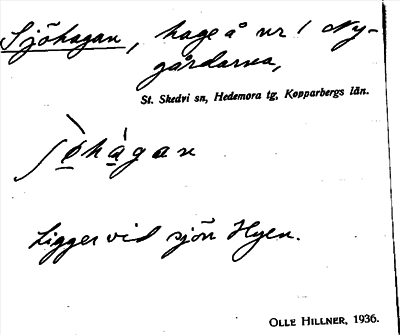 Sjöhagan, hage å nr 1 Ny-
gårdarna,
St. Skedvi sn, Hedemora tg, Kopparbergs län.
ʃøhàgan
Ligger vid sjön Hyen.
OLLE HILLNER, 1936.